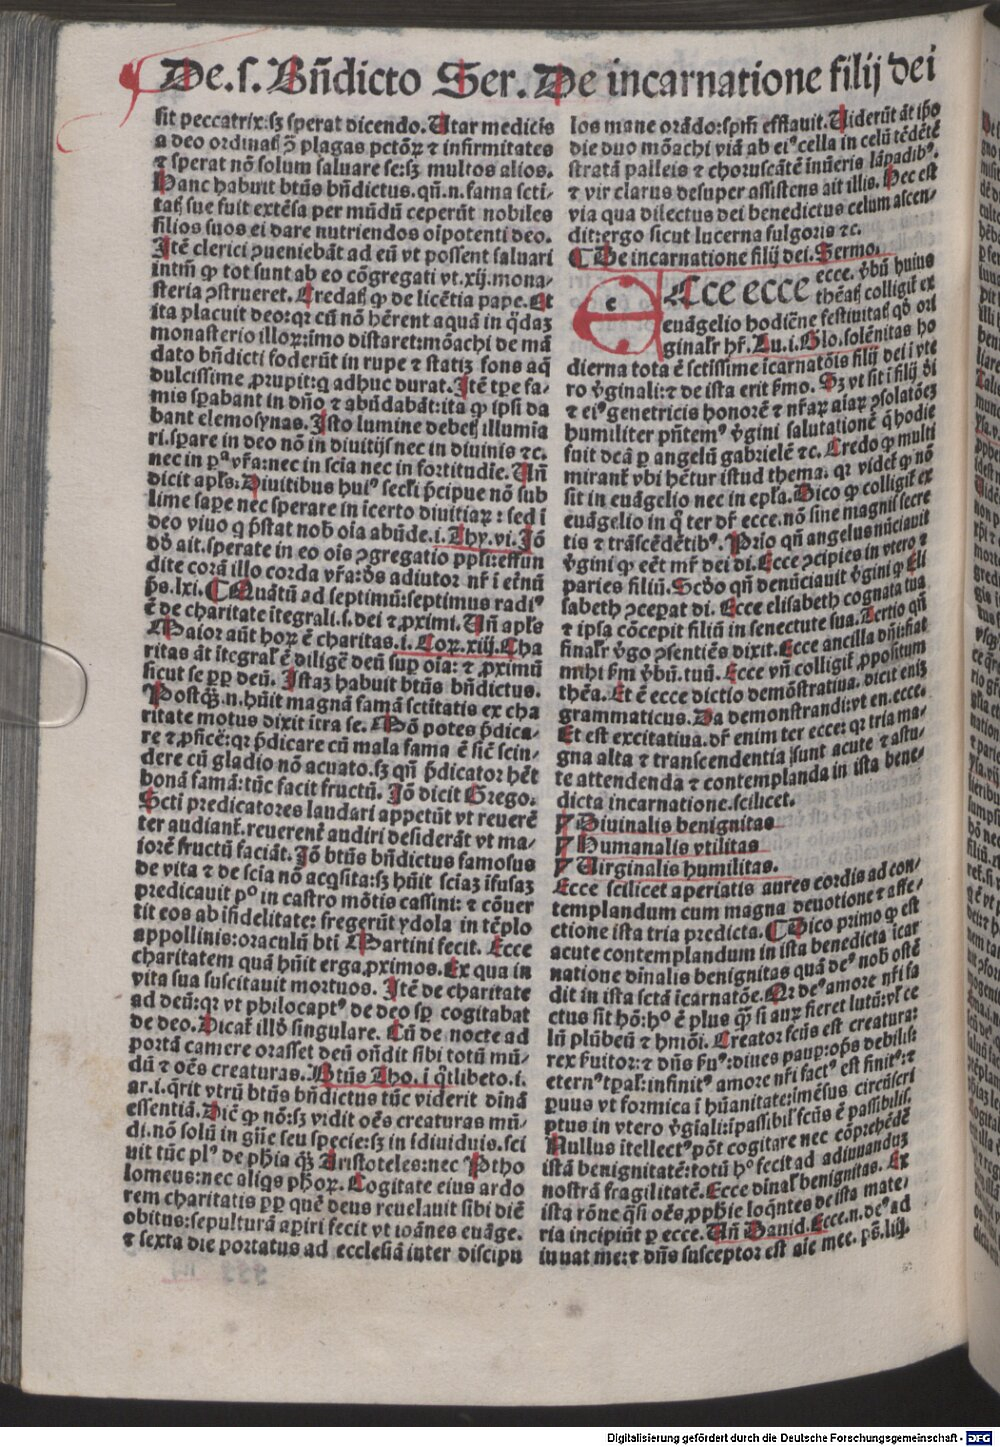 De.s. Bñdicto Ser. De incarnatione filij dei
sit peccatrix:sꝫ sperat dicendo. Utar medicis
a deo ordinatꝭ ꝓ plagas pctõꝝ ⁊ infirmitates
⁊ sperat nõ solum saluare se:sꝫ multos alios.
Hanc habuit btũs bñdictus. qñ.n. fama scti-
tatꝭ sue fuit extẽsa per mũdũ ceperũt nobiles
filios suos ei dare nutriendos oĩpotenti deo.
Itẽ clerici ꝯueniebãt ad eũ vt possent saluari
intm̃ ꝙ tot sunt ab eo cõgregati vt.xij.mona-
steria ꝯstrueret. Credatꝭ ꝙ de licẽtia pape. Et
ita placuit deo:qꝛ cũ nõ hẽrent aquã in q̃daꝫ
monasterio illoꝝ:imo distaret:mõachi de mã
dato bñdicti foderũt in rupe ⁊ statiꝫ fons aq̃
dulcissime ꝓrupit:q̃ adhuc durat. Itẽ tꝑe fa-
mis sꝑabant in dño ⁊ abũdabãt:ita ꝙ ipsi da
bant elemosynas. Isto lumine debetꝭ illumĩa
ri.sꝑare in deo nõ in diuitijs nec in diuinis ⁊c.
nec in pᵃ vr̃a:nec in scia nec in fortitudĩe. Uñ
dicit apl̃s. Diuitibus huiꝰ secl̃i p̃cipue nõ sub
lime saꝑe nec sperare in ĩcerto diuitiaꝝ : sed ĩ
deo viuo q̃ p̃stat nob̃ oĩa abũde.i.Thy.vi.Iõ
dð ait.sperate in eo oĩs ꝯgregatio ppl̃i:effun
dite corã illo corda vr̃a:dẽs adiutor nr̃ ĩ etẽnũ
p̃s.lxi. Quãtũ ad septimũ:septimus radiꝰ
ẽ de charitate ĩtegrali.s.dei ⁊ ꝓximi. Uñ apl̃s
Maior aũt hoꝝ ẽ charitas.i.Coꝝ.xiij.Cha
ritas ãt ĩtegral̃ ẽ diligẽ deũ suꝑ oĩa: ⁊ ꝓximũ
sicut se ꝓꝑ deũ. Istaꝫ habuit btũs bñdictus.
Postq̃ꝫ.n.hũit magnã famã sctitatis ex cha
ritate motus dixit ĩtra se. Nõ potes p̃dica-
re ⁊ ꝓficẽ:qꝛ p̃dicare cũ mala fama ẽ sic̃ scin-
dere cũ gladio nõ acuato.sꝫ qñ p̃dicator hẽt
bonã famã:tũc facit fructũ. Iõ dicit Grego.
Scti predicatores laudari appetũt vt reuerẽ
ter audiant̃.reuerenẽ audiri desiderãt vt ma-
iorẽ fructũ faciãt. Iõ btũs bñdictus famosus
de vita ⁊ de scia nõ acq̃sita:sꝫ hũit sciaꝫ ĩfusaꝫ
predicauit pº in castro mõtis cassini: ⁊ cõuer
tit eos ab ĩfidelitate: fregerũt ydola in tẽplo
appollinis:oraculũ bti Martini fecit. Ecce
charitatem quã hũit erga.ꝓximos. Ex qua in
vita sua suscitauit mortuos. Itẽ de charitate
ad deũ:qꝛ vt philocaptꝰ de deo sꝑ cogitabat
de deo. Dicat̃ illð singulare. Cũ de nocte ad
portã camere orasset deũ oñdit sibi totũ mũ-
dũ ⁊ oẽs creaturas. Btũs Tho. i q̃tlibeto.i.
ar.i.q̃rit vtrũ btũs bñdictus tũc viderit diuinã
essentiã. Dic̃ ꝙ nõ:sꝫ vidit oẽs creaturas mũ-
di.nõ solũ in gñe seu specie:sꝫ in ĩdiuiduis.sci
uit tũc plꝰ de ph̃ia q̃ꝫ Aristoteles:nec Ptho
lomeus:nec aliq̃s ph̃oꝝ. Cogitate eius ardo
rem charitatis ꝓꝑ quẽ deus reuelauit sibi diẽ
obitus:sepulturã aꝑiri fecit vt ioãnes euãge.
⁊ sexta die portatus ad ecclesiã inter discipu
los mane orãdo:spm̃ efflauit. Uiderũt ãt ip̃o
die duo mõachi viã ab eiꝰ cella in celũ tẽdẽtẽ
stratã palleis ⁊ choruscãtẽ inũeris lãpadibꝰ.
⁊ vir clarus desuper assistens ait illis. Hec est
via qua dilectus dei benedictus celum ascen-
dit:ergo sicut lucerna fulgoris ⁊c.
De incarnatione filij dei. Sermo.
ECce ecce ecce. ṽbũ huius
thẽatꝭ colligit̃ ex
euãgelio hodiẽne festiuitatꝭ qð ori
ginalr̃ hr̃.Lu.i.Glo.solẽnitas ho
dierna tota ẽ sctissime ĩcarnatõis filij dei ĩ vte
ro ṽginali:⁊ de ista erit ẜmo. Sꝫ vt sit ĩ filij ði
⁊ eiꝰ genetricis honorẽ ⁊ nr̃aꝝ aĩaꝝ ꝯsolatõeꝫ
humiliter pñtemꝰ ṽgini salutationẽ q̃ hodie
fuit dcã ꝑ angelũ gabrielẽ ⁊c. Credo ꝙ multi
mirant̃ vbi hẽtur istud thema. qꝛ videt̃ ꝙ nõ
sit in euãgelio nec in epl̃a. Dico ꝙ colligit̃ ex
euãgelio in q̃ ter dr̃ ecce.nõ sine magnis secre
tis ⁊ trãscẽdẽtibꝰ. Prĩo qñ angelus nũciauit
ṽgini ꝙ eẽt mr̃ dei di. Ecce ꝯcipies in vtero ⁊
paries filiũ. Scðo qñ denũciauit ṽgini ꝙ Eli
sabeth ꝯceꝑat di. Ecce elisabeth cognata tua
⁊ ipsa cõcepit filiũ in senectute sua. Tertio qñ
finalr̃ ṽgo ꝯsentiẽs dixit. Ecce ancilla dñi:fiat
mihi ẜm ṽbũ.tuũ. Ecce vñ colligit̃ ꝓpositum
thẽa. Et ẽ ecce dictio demõstratiua. dicit eniꝫ
grammaticus. Da demonstrandi:vt en.ecce.
Et est excitatiua. dr̃ enim ter ecce: qꝛ tria ma-
gna alta ⁊ transcendentia sunt acute ⁊ astu-
te attendenda ⁊ contemplanda in ista bene-
dicta incarnatione.scilicet.
Diuinalis benignitas
Humanalis vtilitas
Uirginalis humilitas.
Ecce scilicet aperiatis aures cordis ad con-
templandum cum magna deuotione ⁊ affe-
ctione ista tria predicta. Dico primo ꝙ est
acute contemplandum in ista benedicta ĩcar
natione diuinalis benignitas quã deꝰ nob̃ ostẽ
dit in ista sctã ĩcarnatõe. Nr̃ deꝰ amore nr̃i fa
ctus sit hõ:hº ẽ plus q̃ꝫ si auꝝ fieret lutũ:vl̃ ce
lũ plũbeũ ⁊ hmõi. Creator fcũs est creatura:
rex ẜuitor:⁊ dñs ẜuꝰ:diues pauꝑ:op̃s debilis:
eternꝰ tꝑal̃:infinitꝰ amore nr̃i factꝰ est finitꝰ:⁊
ꝑuus vt formica ĩ hũanitate:ĩmẽsus circũscri
ptus in vtero ṽgĩali:ĩpassibil̃ fcũs ẽ passibilis.
Nullus ĩtellectꝰ põt cogitare nec cõprehẽdẽ
istã benignitatẽ:totũ hº fecit ad adiuuanduꝫ
nostrã fragilitatẽ. Ecce dĩnal̃ benignitas. Ex
ista rõne q̃si oẽs ꝓph̃ie loq̃ntes de ista mate-
ria incipiũt ꝑ ecce. Uñ Dauid. Ecce.n.deꝰ ad
iuuat me:⁊ dñs susceptor est aĩe mee. ps̃.liij.
Digitalisierung gefördert durch die Deutsche Forschungsgemeinschaft - DFG